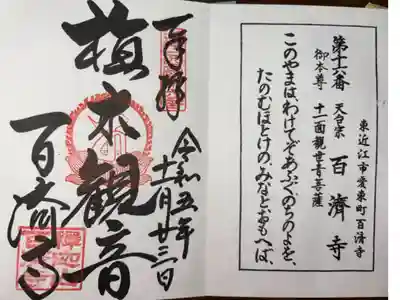 東近江市愛東町百済寺
第十六番 天台宗 百濟寺
御本尊 十一面観世音菩薩
このやまはわけてぞあふぐのちのよを、
たのむほとけの、みなとおもへば、
奉拝
令和五年
十一月廿三日
植木観音
百済寺